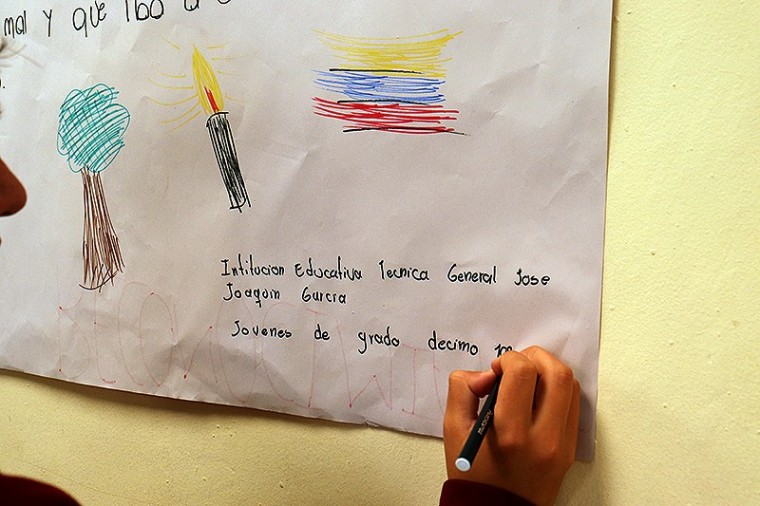 mal y que iba a
Intitucion Educativa Tecnica General Jose
Joaquin Garcia
Jovenes de grado decimo